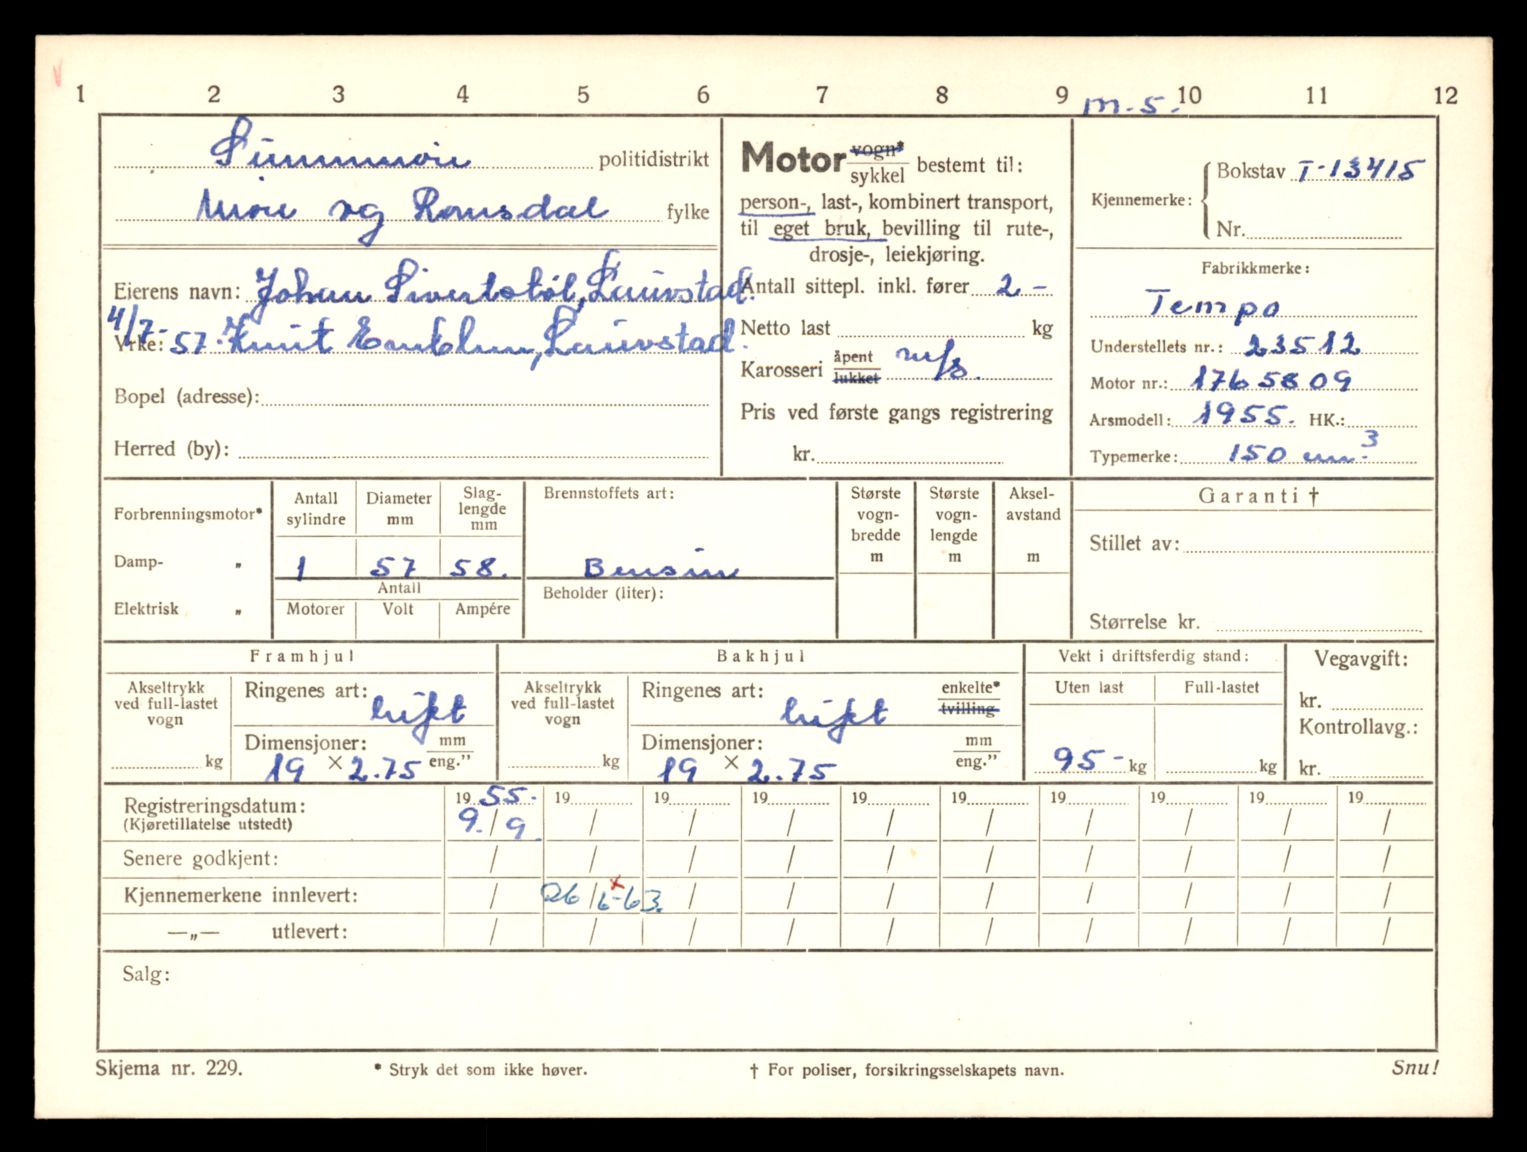 1 2 3 4 5 6 7 8 9 10 11 12
m.s.
Sunnmøre politidistrikt
Møre og Romsdal fylke
Eierens navn: Johan Sivertstøl, Lauvstad.
4/7-
Yrke: 57. Knut Lauvstad.
Bopel (adresse):
Herred (by):
Motor vogn*
sykkel bestemt til:
person-, last-, kombinert transport,
til eget bruk, bevilling til rute-,
drosje-, leiekjøring.
Antall sittepl. inkl. fører 2 -
Netto last kg
Karosseri åpent
lukket m/s.
Pris ved første gangs registrering
kr.
Kjennemerke: Bokstav T-13415
Nr.
Fabrikkmerke:
Tempo
Understellets nr.: 23512
Motor nr.: 1765809
Årsmodell: 1955. HK.:
Typemerke: 150 cm.3
Forbrenningsmotor*
Damp- „
Elektrisk „
Antall sylindre
Diameter mm
Slag-lengde mm
1 57 58.
Antall
Motorer Volt Ampére
Brennstoffets art:
Bensin
Beholder (liter):
Største vogn-bredde m
Største vogn-lengde m
Aksel-avstand m
Garanti †
Stillet av:
Størrelse kr.
Framhjul
Akseltrykk
ved full-lastet
vogn
kg
Ringenes art:
luft
Dimensjoner: mm
19 × 2.75 eng."
Bakhjul
Akseltrykk
ved full-lastet
vogn
kg
Ringenes art: enkelte*
luft tvilling
Dimensjoner: mm
19 × 2.75 eng."
Vekt i driftsferdig stand:
Uten last Full-lastet
95- kg kg
Vegavgift:
kr.
Kontrollavg.:
kr.
Registreringsdatum: 1955. 19 19 19 19 19 19 19 19 19
(Kjøretillatelse utstedt) 9./9. / / / / / / / / /
Senere godkjent: / / / / / / / / / /
Kjennemerkene innlevert: / 26/6-63. / / / / / / / /
—„— utlevert: / / / / / / / / / /
Salg:
Skjema nr. 229. * Stryk det som ikke høver. † For poliser, forsikringsselskapets navn. Snu!